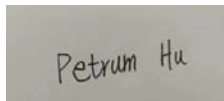 Petrum Hu